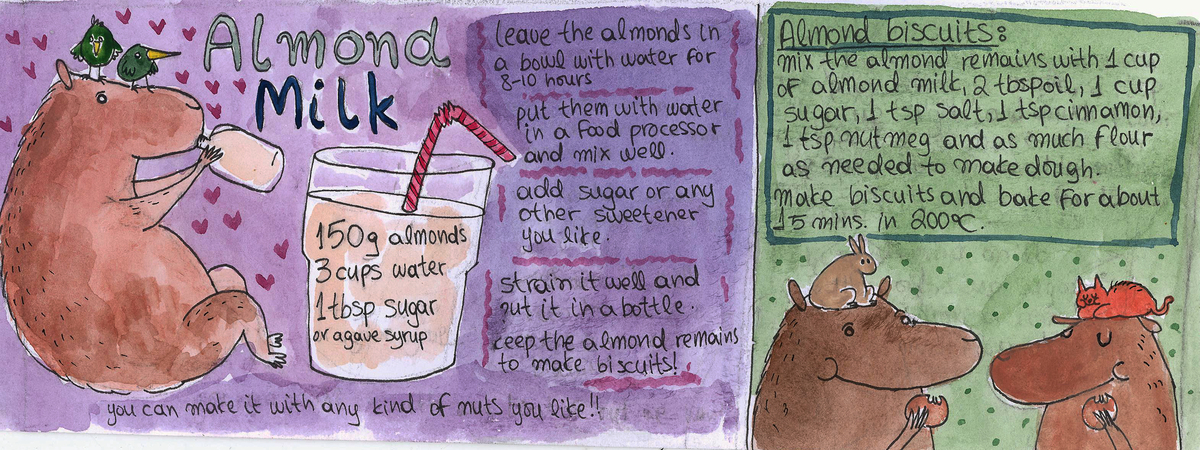 Almond
Milk
150g almonds
3 cups water
1 tbsp sugar
or agave syrup
leave the almonds in
a bowl with water for
8-10 hours
put them with water
in a food processor
and mix well.
add sugar or any
other sweetener
you like.
strain it well and
put it in a bottle.
keep the almond remains
to make biscuits!
you can make it with any kind of nuts you like!!
Almond biscuits:
mix the almond remains with 1 cup
of almond milk, 2 tbsp oil, 1 cup
sugar, 1 tsp salt, 1 tsp cinnamon,
1 tsp nutmeg and as much flour
as needed to make dough.
make biscuits and bake for about
15 mins. in 200°C.